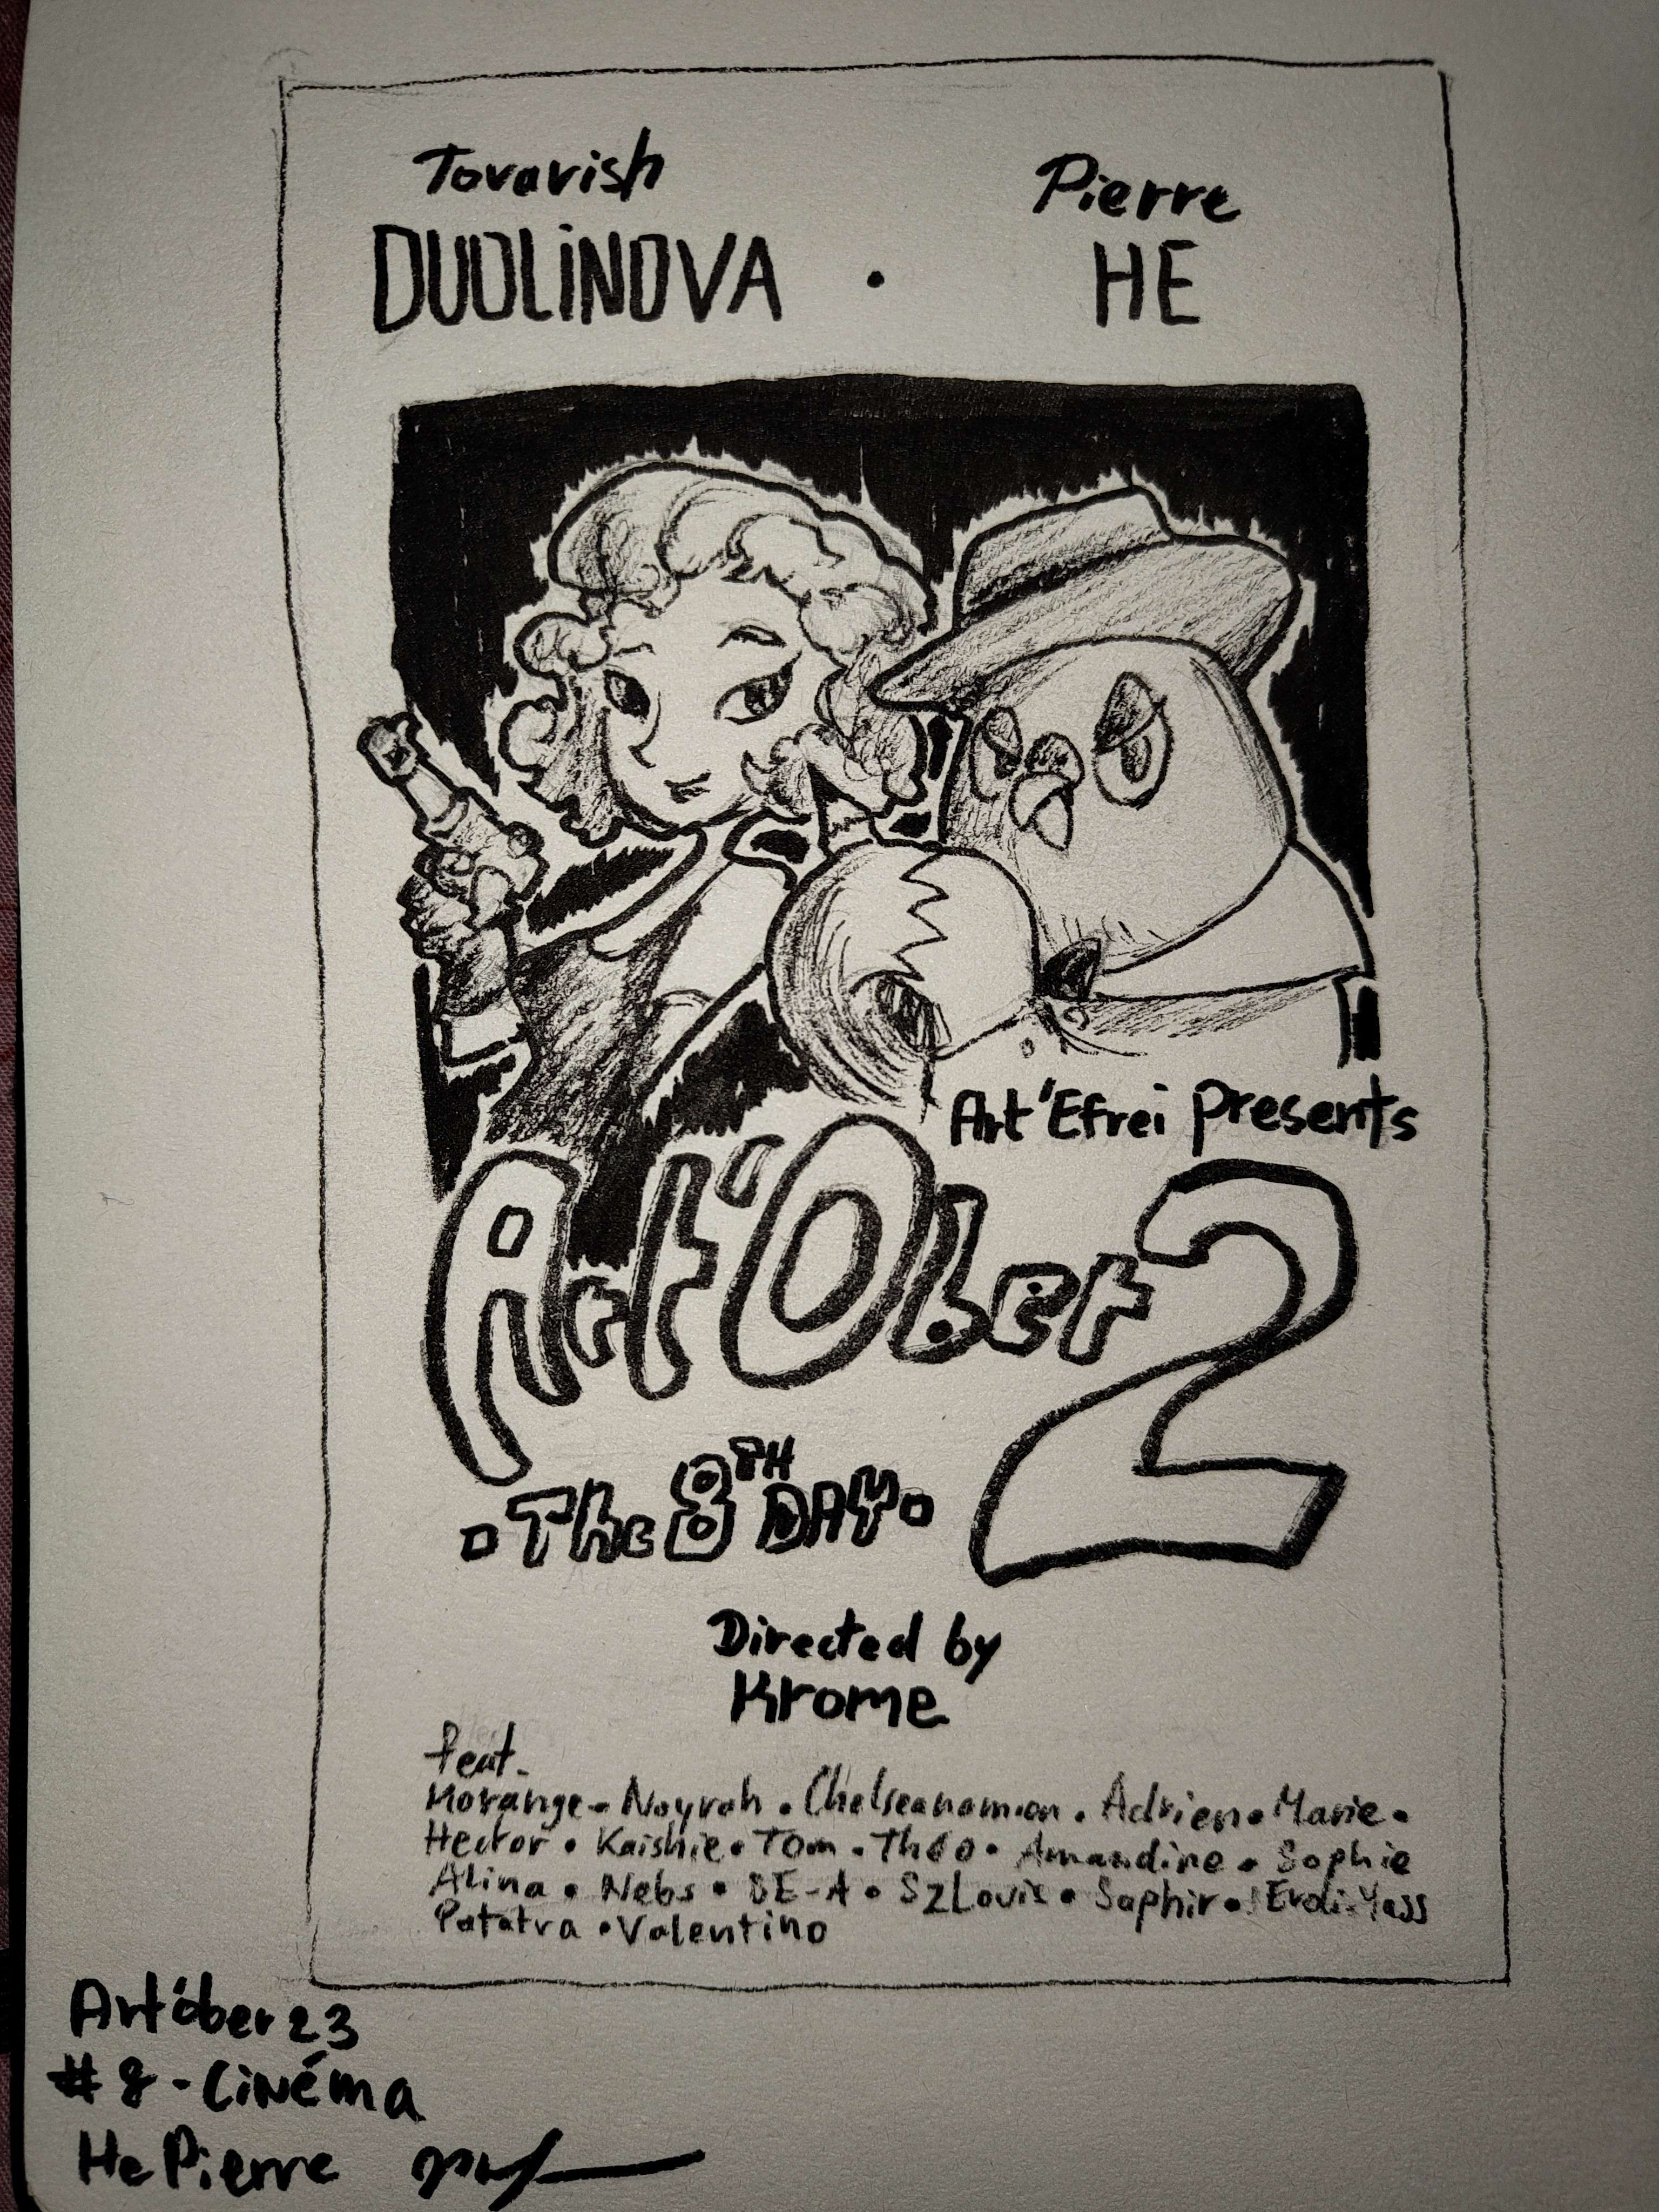 Tovarish
DUOLINOVA • Pierre
HE
Art'Efrei presents
Art'Ober 2
The 8TH DAY
Directed by
Krome
feat.
Morange • Nayrah • Chelseanamion • Adrien • Marie •
Hector • Kaishie • Tom • Théo • Amandine • Sophie
Alina • Nebs • SE-A • SZLouis • Saphir • Erdi • Yass
Patatra • Valentino
Art'ober 23
#8 - Cinéma
He Pierre